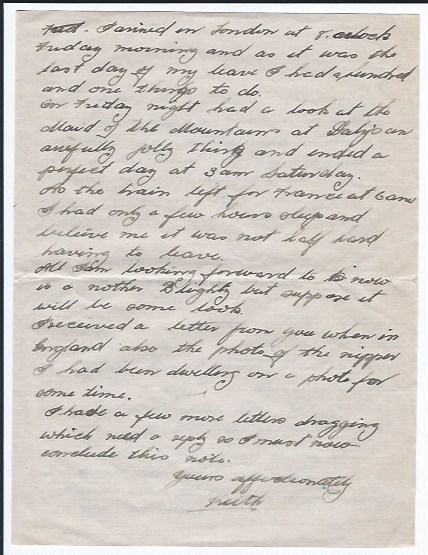 I arrived in London at 8. oclock
Friday morning and as it was the
last day of my leave I had a hundred
and one things to do.
On Friday night had a look at the
Maid of the Mountains at Daly's an
awfully jolly thing and ended a
perfect day at 3am Saturday.
As the train left for France at 6am
I had only a few hours sleep and
believe me it was not half hard
having to leave.
All I am looking forward to now
is a nother Blighty but suppose it
will be some
I received a letter from you when in
England also the photo of the nipper
I had been dwelling on a photo for
some time.
I have a few more letters dragging
which need a reply so I must now
conclude this note.
Yours affectionately
Keith